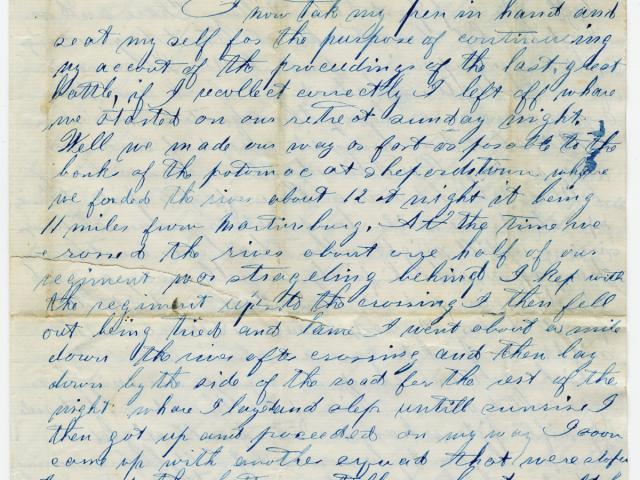 I now tak my pen in hand and
seat my self for the purpose of continueing
my accout of the proceedings of the last great
battle, if I recollect correctly I left off whare
we started on our retreat sunday night.
Well we made our way as fast as posable to the
bank of the potomac at sheperdstown whare
we forded the river about 12 at night it being
11 miles from Martinsburg. At the time we
crossed the river about one half of our
regiment was strageling behind I kep with
the regiment up to the crossing I then fell
out being tried and lame I went about a mile
down the river after crossing and then lay
down by the side of the road for the rest of the
night whare I layed and slep untill sunrise I
then got up and proceeded on my way I soon
came up with another squad that were